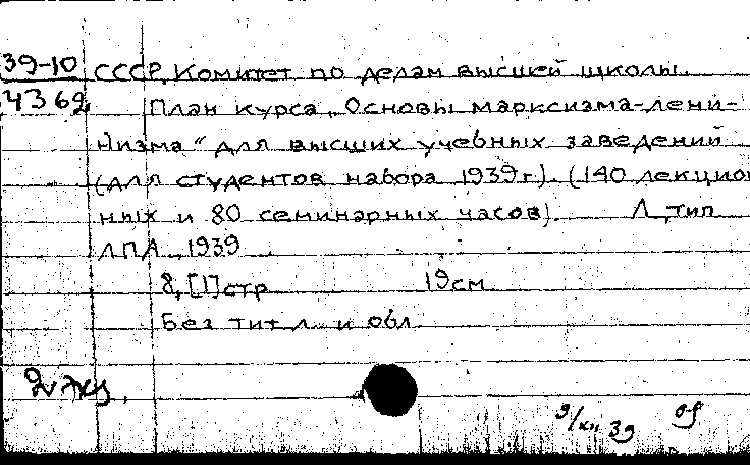 39-10 СССР. Комитет по делам высшей школы.
4362 План курса „Основы марксизма-лени-
низма“ для высших учебных заведений
(для студентов набора 1939 г.). (140 лекцион
ных и 80 семинарных часов). Л., тип
ЛПА, 1939
8, [1] стр 19 см
Без тит. л. и обл.
9/кн 39